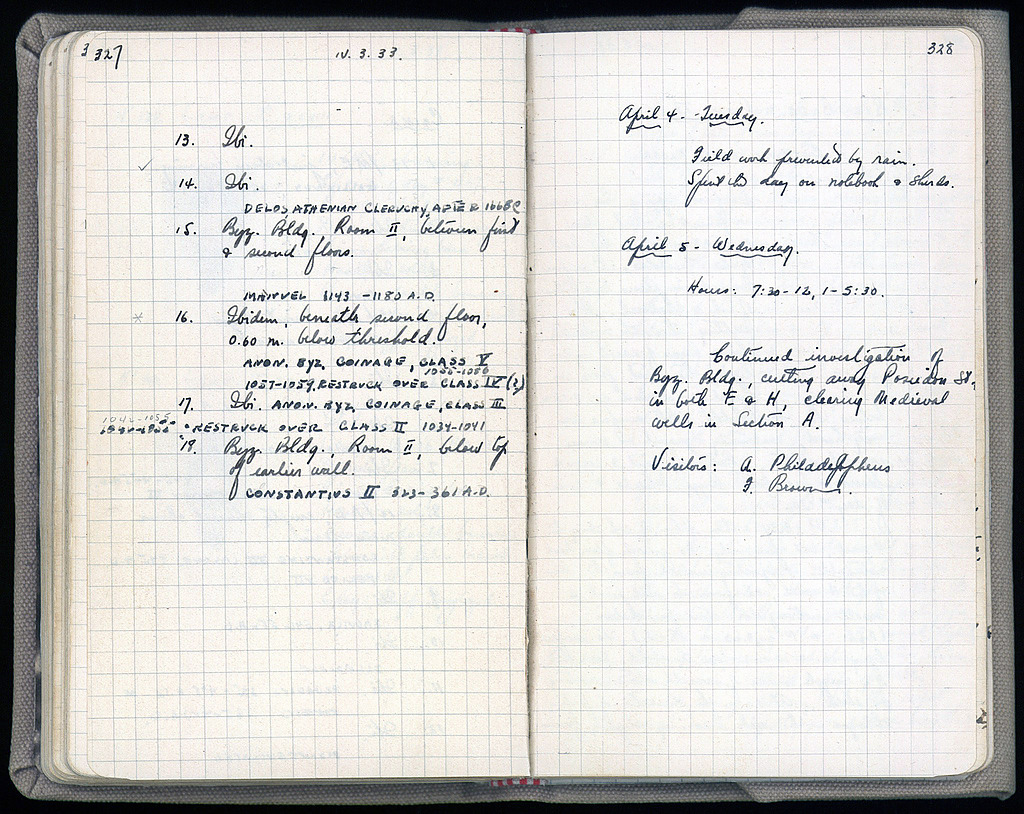 327
IV. 3. 33.
13. Ibi.
14. Ibi.
DELOS, ATHENIAN CLERUCHY, AFTER 166 B.C.
15. Byz. Bldg. Room II, between first
& second floors.
MANUEL I 1143 - 1180 A.D.
16. Ibidem, beneath second floor,
0.60 m. below threshold.
ANON. BYZ. COINAGE, CLASS V
1057-1059, RESTRUCK OVER CLASS IV (?)
17. Ibi. ANON. BYZ. COINAGE, CLASS III
1042-1055
RESTRUCK OVER CLASS II 1034-1041
19. Byz. Bldg., Room II, below top
of earlier wall.
CONSTANTIUS II 323-361 A.D.
328
April 4 - Tuesday.
Field work prevented by rain.
Spent the day on notebook & sherds.
April 5 - Wednesday.
Hours: 7:30-12, 1-5:30.
Continued investigation of
Byz. Bldg., cutting away Poseidon St.,
in both E & H, clearing Medieval
wells in Section A.
Visitors: A. Philadelpheus
F. Brown.